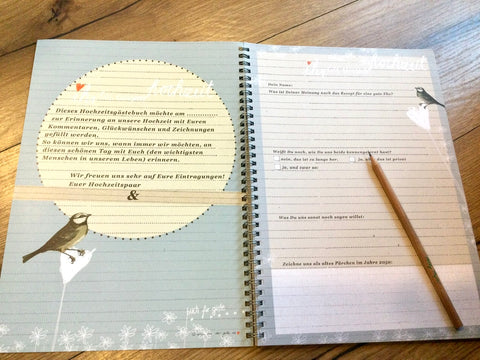 Hochzeit
Dieses Hochzeitsgästebuch möchte am ............
zur Erinnerung an unsere Hochzeit mit Euren
Kommentaren, Glückwünschen und Zeichnungen
gefüllt werden.
So können wir uns, wann immer wir möchten, an
diesen schönen Tag mit Euch (den wichtigsten
Menschen in unserem Leben) erinnern.
Wir freuen uns sehr auf Eure Eintragungen!
Euer Hochzeitspaar
&
Hochzeit
Dein Name:
Was ist Deiner Meinung nach das Rezept für eine gute Ehe?
Weißt Du noch, wie Du uns beide kennengelernt hast?
nein, das ist zu lange her.
Ja, das ist privat
Ja, und zwar so:
Was Du uns sonst noch sagen willst:
Zeichne uns als altes Pärchen im Jahre 2050: